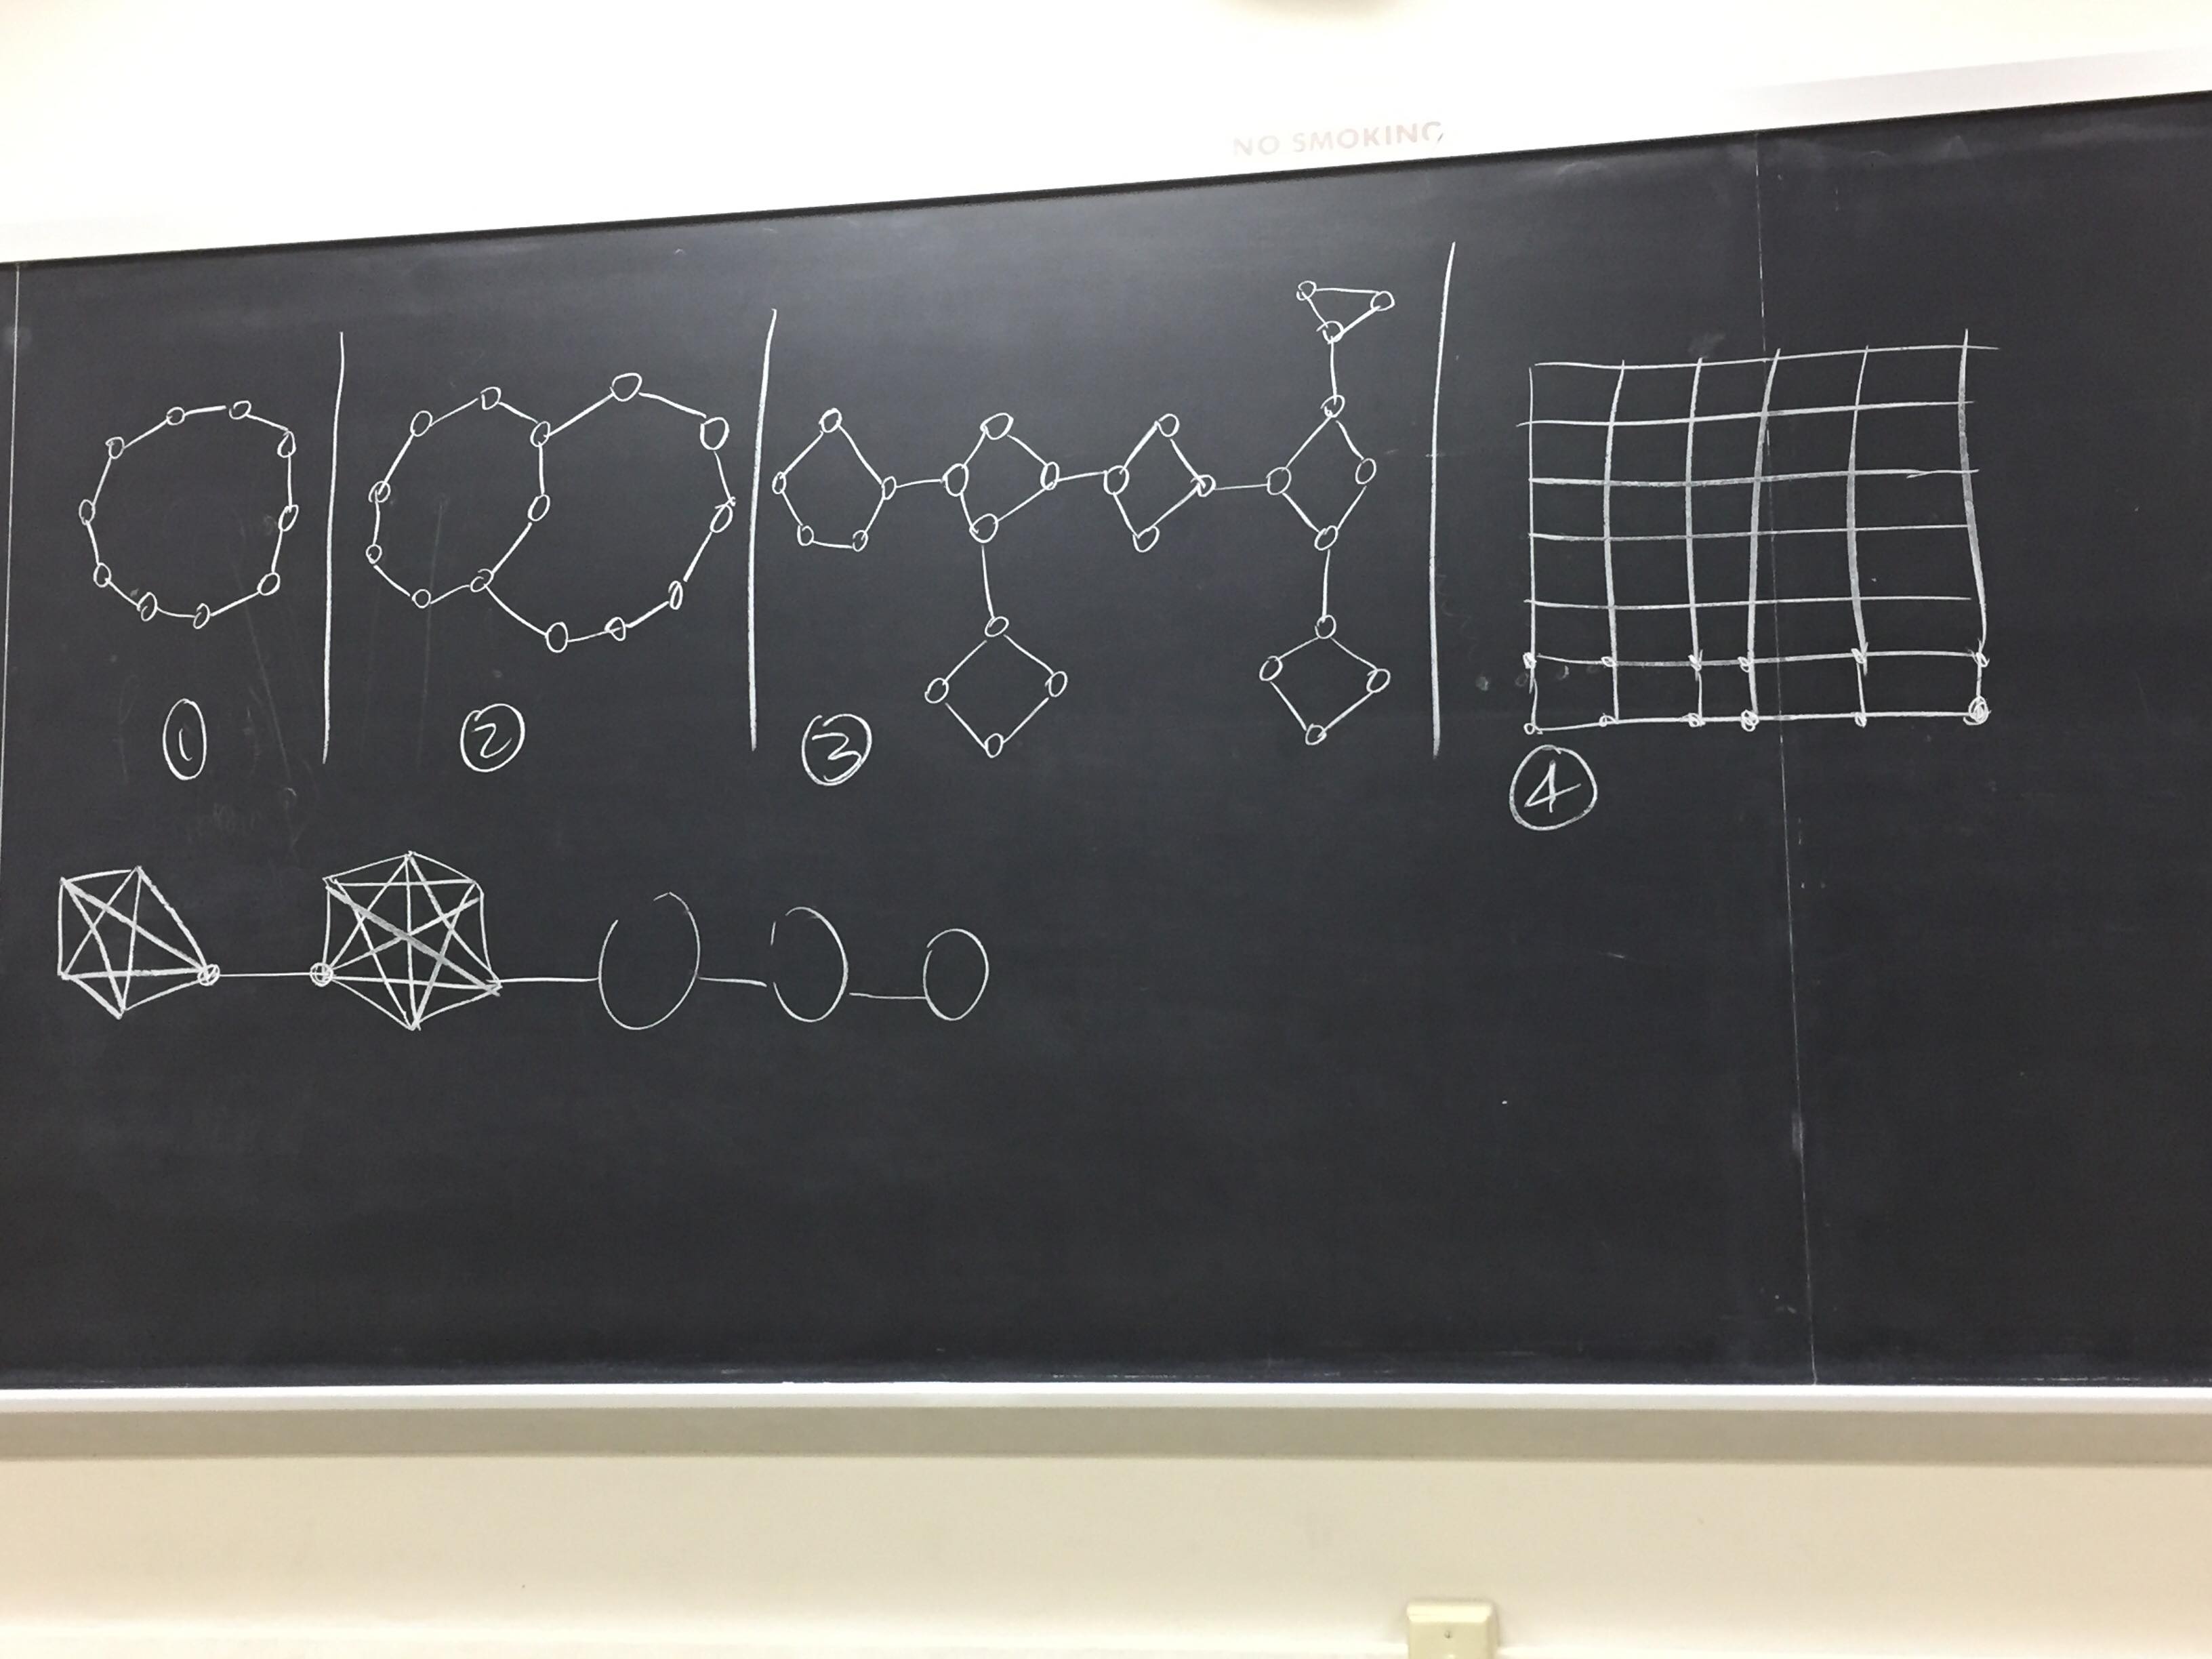 NO SMOKING
1
2
3
4